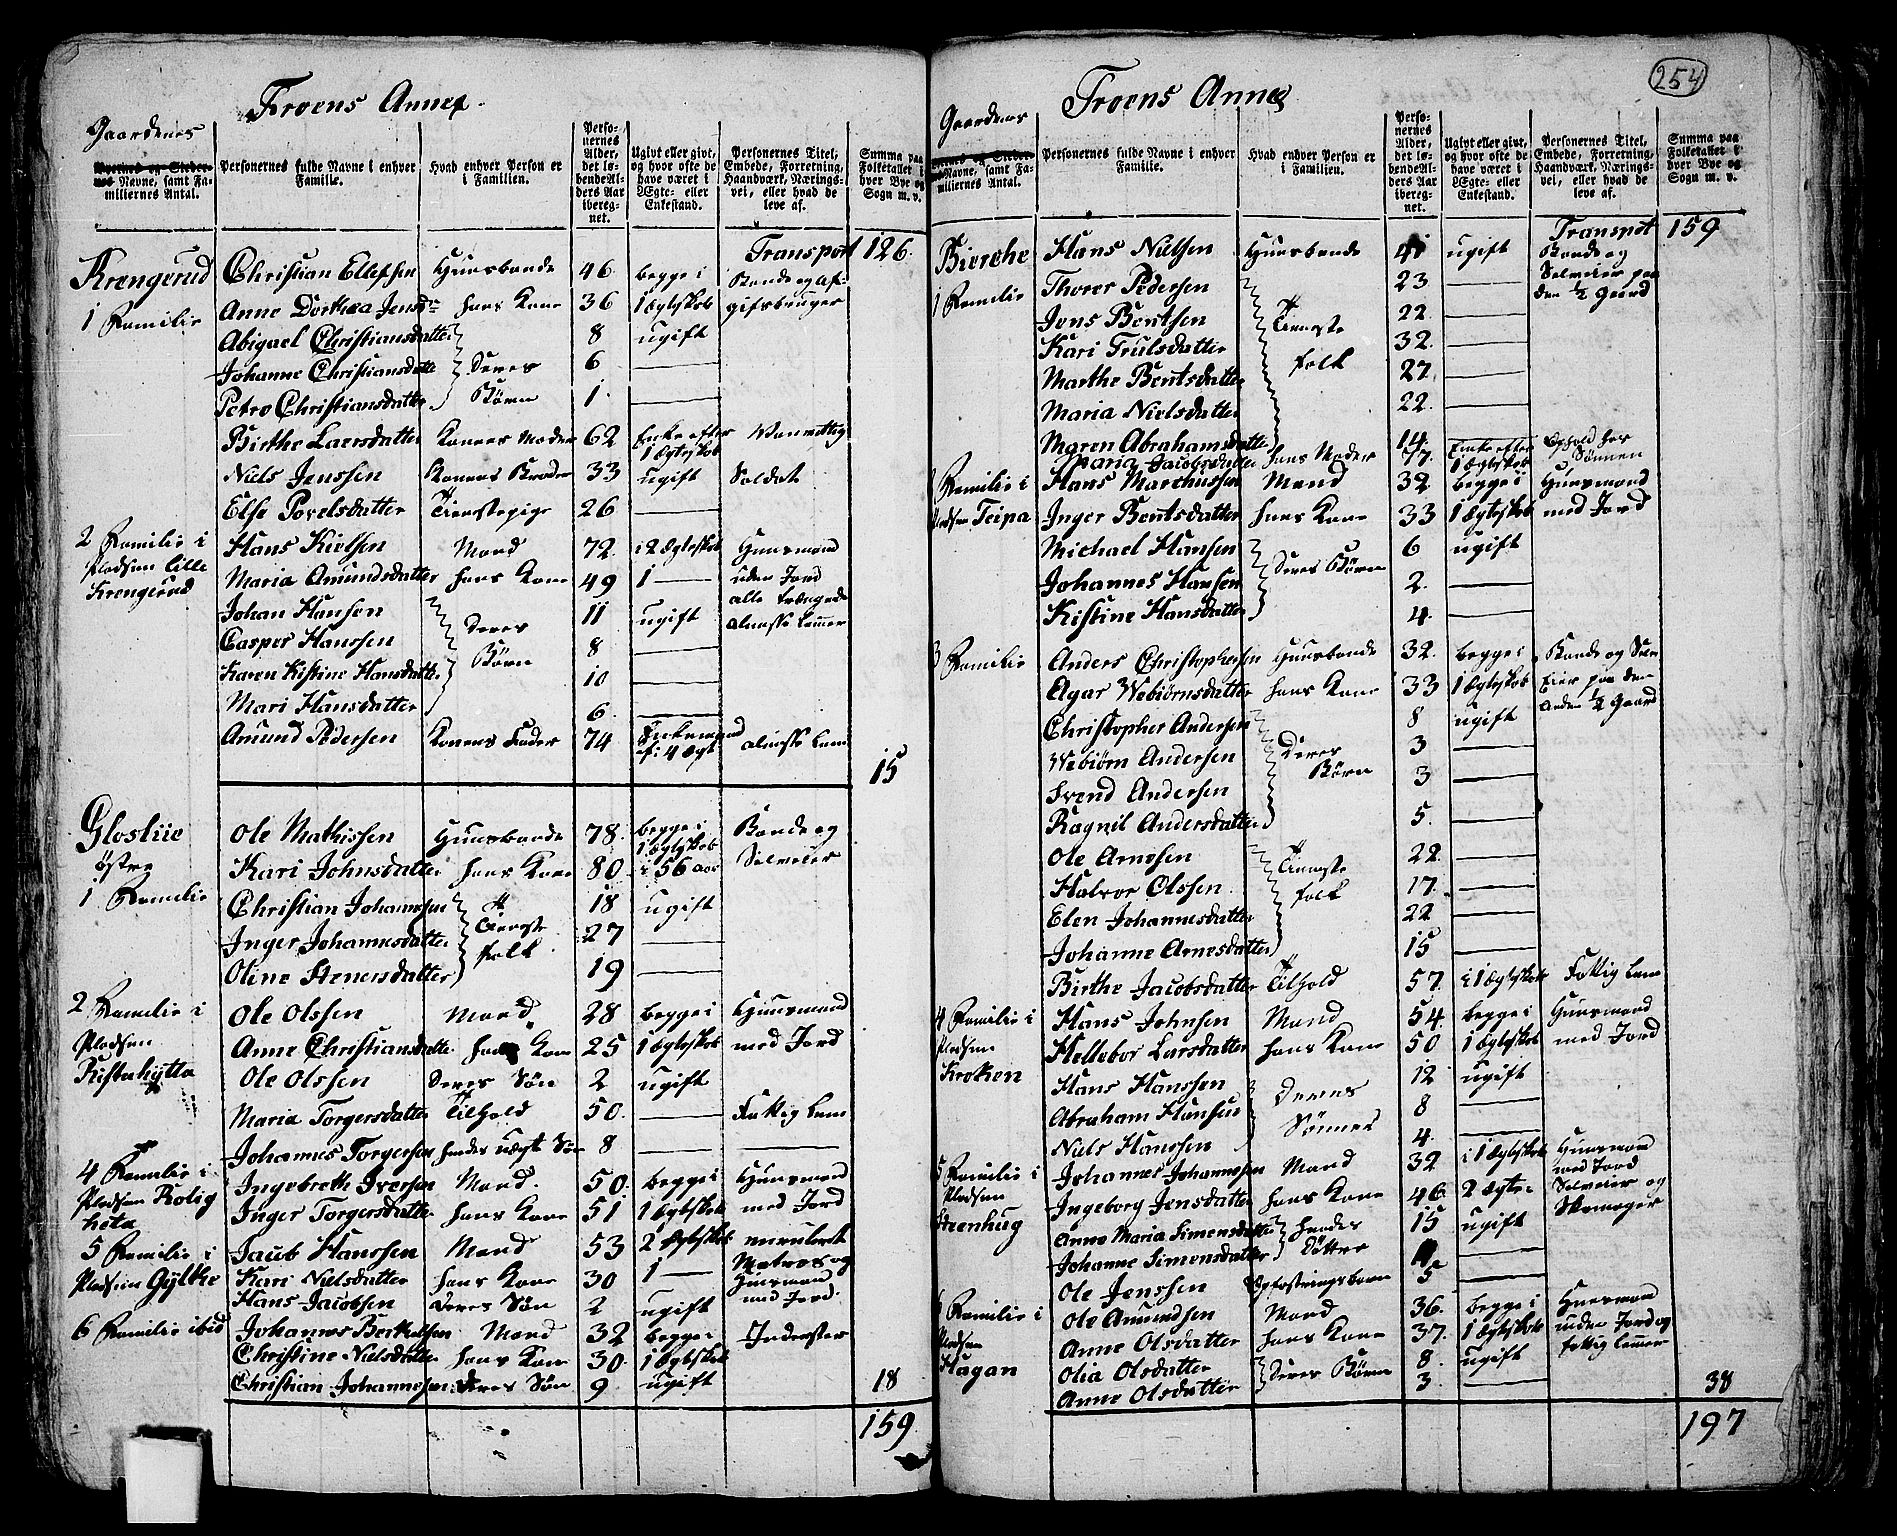 254
Froens Annex
Gaardenes
Byernes og Stedernes Navne, samt Familiernes Antal.
Personernes fulde Navne i enhver Familie.
Hvad enhver Person er i Familien.
Personernes Alder, det løbende Alders Aar iberegnet.
Ugivt eller givt, og hvor ofte de have været i Ægte- eller Enkestand.
Personernes Titel, Embede, Forretning, Haandværk, Næringsvei, eller hvad de leve af.
Summa paa Folketallet i hver Bye og Sogn m. v.
Transport 126
Krengerud Christian Ellefsen Huusbonde 46 begge i Bonde og af-
1 Familie Anne Dorthea Jensdr hans Kone 36 1 Ægteskab giftsbruger
Abigael Christiansdatter 8 ugift
Johanne Christiansdatter Deres 6
Petro Christiansdatter Børn 1
Birthe Larsdatter Konens Moder 62 Enke efter 1 Ægteskab Vanvittig
Niels Jenssen Konens Broder 33 ugift Soldat
Else Povelsdatter Tienestepige 26
2 Familie i Hans Kielsen Mand 72 i 2 Ægteskab Huusmand
Pladsen lille Maria Amundsdatter hans Kone 49 1 uden Jord
Krengerud Johan Hansen 11 ugift alle trængende
Casper Hanssen Deres 8 almisse Lemmer
Karen Kistine Hansdatter Børn 10
Mari Hansdatter 6
Amund Pedersen Konens Fader 74 Enkemand ef: 4 Ægt almisse Lem
15
Gloslie Ole Mathissen Huusbonde 78 begge i Bonde og
østre Kari Johnsdatter hans Kone 80 1 Ægteskab i 56 aar Selveier
1 Familie Christian Johannesen 18 ugift
Inger Johannesdatter Tieneste 27
Oline Stenersdatter folk 19
2 Familie i Ole Olssen Mand 28 begge i Huusmand
Pladsen Anne Christiansdatter hans Kone 25 1 Ægteskab med Jord
Ristahytta Ole Olssen Deres Søn 2 ugift
Maria Torgersdatter Tilhold 50 Fattig Lem
Johannes Torgersen hendes uægt Søn 8
4 Familie i Ingebreth Iversen Mand 50 begge i Huusmand
Pladsen Rolig Inger Torgersdatter hans Kone 51 1 Ægteskab med Jord
heta
5 Familie i Jacob Hanssen Mand 53 2 Ægteskab
Pladsen Gylthe Kari Nielsdatter hans Kone 30 1 Matros og Huusmand
Hans Jacobsen Deres Søn 2 ugift med Jord
6 Familie ibid Johannes Berthelsen Mand 32 begge i Inderster
Christine Nielsdatter hans Kone 30 1 Ægteskab
Christian Johannesen Deres Søn 9 ugift
18
159
Froens Annex
Gaardenes
Byernes og Stedernes Navne, samt Familiernes Antal.
Personernes fulde Navne i enhver Familie.
Hvad enhver Person er i Familien.
Personernes Alder, det løbende Alders Aar iberegnet.
Ugivt eller givt, og hvor ofte de have været i Ægte- eller Enkestand.
Personernes Titel, Embede, Forretning, Haandværk, Næringsvei, eller hvad de leve af.
Summa paa Folketallet i hver Bye og Sogn m. v.
Transport 159
Bierche Hans Nielsen Huusbonde 41 ugift Bonde og
1 Familie Thorer Pedersen 23 Selveier paa
Jens Bentsen 22 den 1/2 Gaard
Kari Trulsdatter Tieneste 32
Marthe Bentsdatter folk 27
Maria Nielsdatter 22
Maren Abrahamsdatter 14
Maria Jacobsdatter hans Moder 77 Enke efter 1 Ægteskab Ophold hos Sønnen
2 Familie i Hans Marchussen Mand 32 begge i Huusmand
Pladsen Teipa Inger Bentsdatter hans Kone 33 1 Ægteskab med Jord
Michael Hansen 6 ugift
Johannes Hansen Deres Børn 2
Kistine Hansdatter 4
3 Familie Anders Christophersen Huusbonde 32 begge i Bonde og Selv
Agar Webiørnsdatter hans Kone 33 1 Ægteskab Eier paa den
Christopher Andersen 8 ugift anden 1/2 Gaard
Webiørn Andersen Deres 3
Svend Andersen Børn 3
Ragnil Andersdatter 5
Ole Arnesen 22
Halvor Olssen Tieneste 17
Elen Johannesdatter folk 22
Johanne Arnesdatter 15
Birthe Jacobsdatter Tilhold 57 i 1 Ægteskab Fattig Lem
4 Familie i Hans Johnsen Mand 54 begge i Huusmand
Pladsen Hellebor Larsdatter hans Kone 50 1 Ægteskab med Jord
Kroken Hans Hanssen 12 ugift
Abraham Hansen Deres 8
Niels Hanssen Sønner 4
5 Familie i Johannes Johannesen Mand 32 i 1 Ægteskab Huusmand med Jord
Pladsen Ingeborg Jensdatter hans Kone 46 2 Ægte: Selveier og
Steenhug Anne Maria Simensdatter hendes 15 ugift Skomager
Johanne Simensdatter Døttre
Ole Jenssen Opfostringsbarn 5
Familie i Ole Amundsen Mand 36 begge i Huusmand
Pladsen Anne Olsdatter hans Kone 37 1 Ægteskab uden Jord og
Hagan Olia Olsdatter Deres Børn 8 ugift fattig Lemmer
Anne Olsdatter 3
38
197